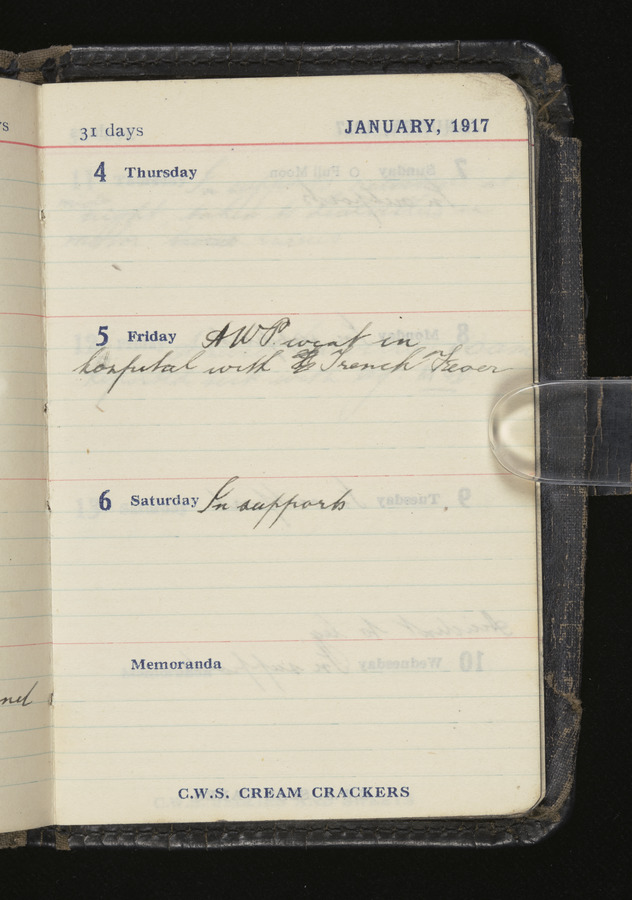 s
31 days JANUARY, 1917
4 Thursday
5 Friday AWP went in
hospital with Trench Fever
6 Saturday In supports
Memoranda
C.W.S. CREAM CRACKERS